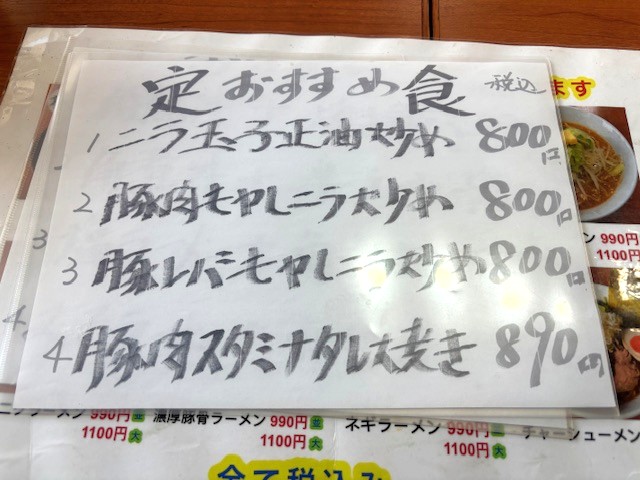 定おすすめ食 税込
1 ニラ玉子正油炒め 800円
2 豚肉モヤシニラ炒め 800円
3 豚レバーモヤしニラ炒め 800円
4 豚肉スタミナタレ大焼き 890円
ます
ン 990円
1100円
990円並 濃厚豚骨ラーメン 990円並 ネギラーメン 990円 チャーシューメン
1100円大 1100円大 1100円大
全て税込み